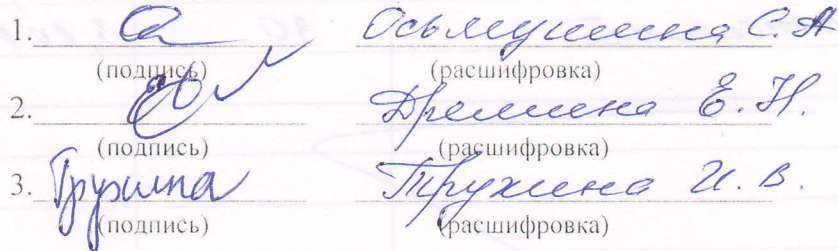 1. Осьмушина С.А
(подпись) (расшифровка)
2. Дремина Е.Н.
(подпись) (расшифровка)
3. Трухина Трухина И.В.
(подпись) (расшифровка)